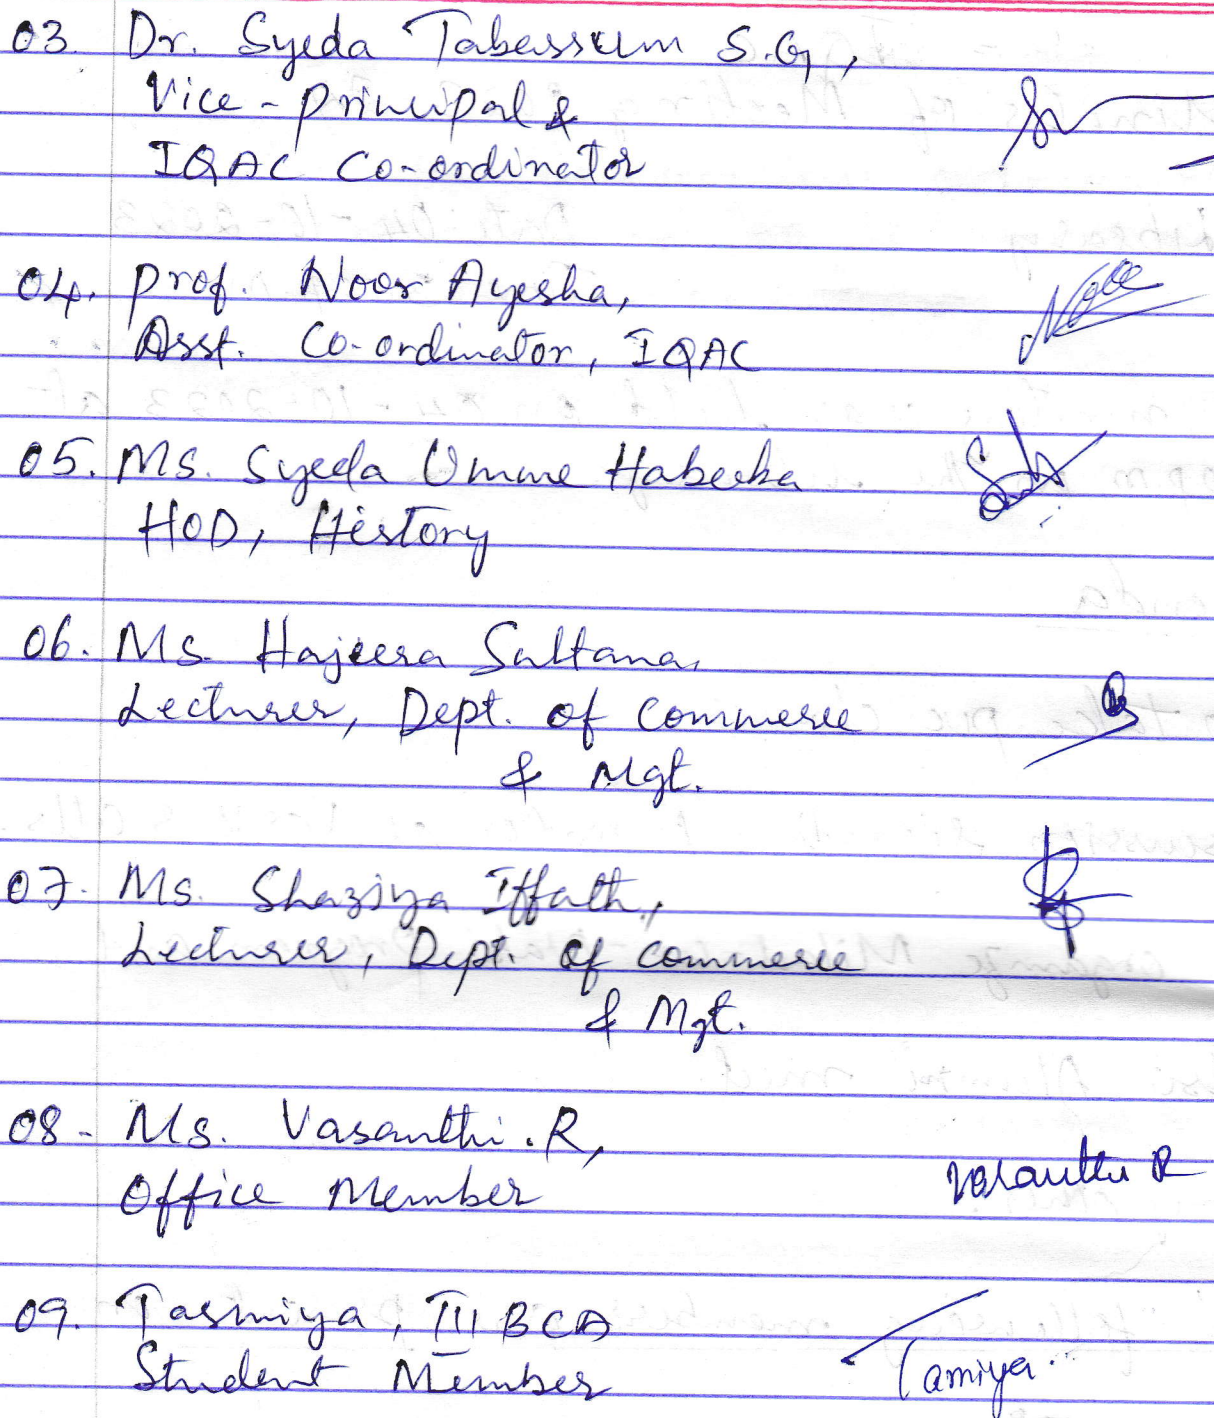 03. Dr. Syeda Tabassum S.G,
Vice-Principal &
IQAC Co-ordinator
04. Prof. Noor Ayesha,
Asst. Co-ordinator, IQAC
05. Ms. Syeda Umme Habeeba
HOD, History
06. Ms. Hajeera Sultana,
Lecturer, Dept. of Commerce
& Mgt.
07. Ms. Shaziya Iffath,
Lecturer, Dept. of Commerce
& Mgt.
08- Ms. Vasanthi.R,
Office Member
Vasanthi R
09. Tasmiya, III BCA
Student Member
Tamiya